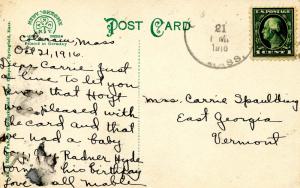 POST CARD
Printed in Germany
Mass
Oct 21, 1916.
Dear Carrie Just
a line to let you
know that Hoyt
was pleased with
the card and that
we had a baby
Radner Hyde
his birthday
Love all Mabel
21
1916
MASS.
1 CENT 1
Mrs. Carrie Spaulding
East Georgia
Vermont